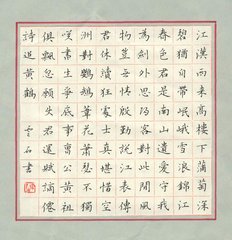 江漢西來高樓下蒲萄深
碧猶自帶岷峨雪浪錦江
春色君是南山遺愛守我
為劍外思歸客對此間風
物豈無情殷勤說江表傳
君休讀狂處士真堪惜空
洲對鸚鵡葦花蕭瑟不獨
笑書生爭底事曹公黃祖
俱飄忽願使君還賦謫仙
詩追黃鶴
云石書